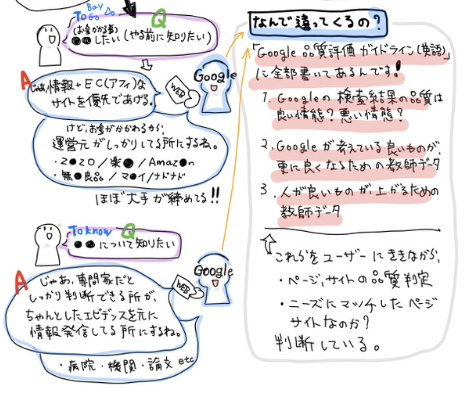 Buy
To Go Do
Q
(お金かかる系)
●●したい(やる前に知りたい)
A
じゃあ情報+EC(アフィ)な
サイトを優先であげる。
Google
WEB
けどお金がかかわるから
運営元がしっかりしてる所にするね。
・2●20/楽●/Amaz●n
・無●良品/マ●イ/ナドナド
ほぼ大手が締めてる!!
To know
Q
●●について知りたい
Google
WEB
A
じゃあ、専門家だと
しっかり判断できる所が、
ちゃんとしたエビデンスを元に
情報発信してる所にするね。
・病院・機関・論文 etc
なんで違ってくるの?
「Google 品質評価ガイドライン(英語)」
に全部書いてあるんです!
1. Googleの検査結果の品質は
良い情態?悪い情態?
2. Googleが考えている良いものが、
更に良くなるための教師データ
3. 人が良いものが、上がるための
教師データ
これらをユーザーにききながら、
・ページ,サイトの品質判定
・ニーズにマッチしたページ
サイトなのか?
判断している。